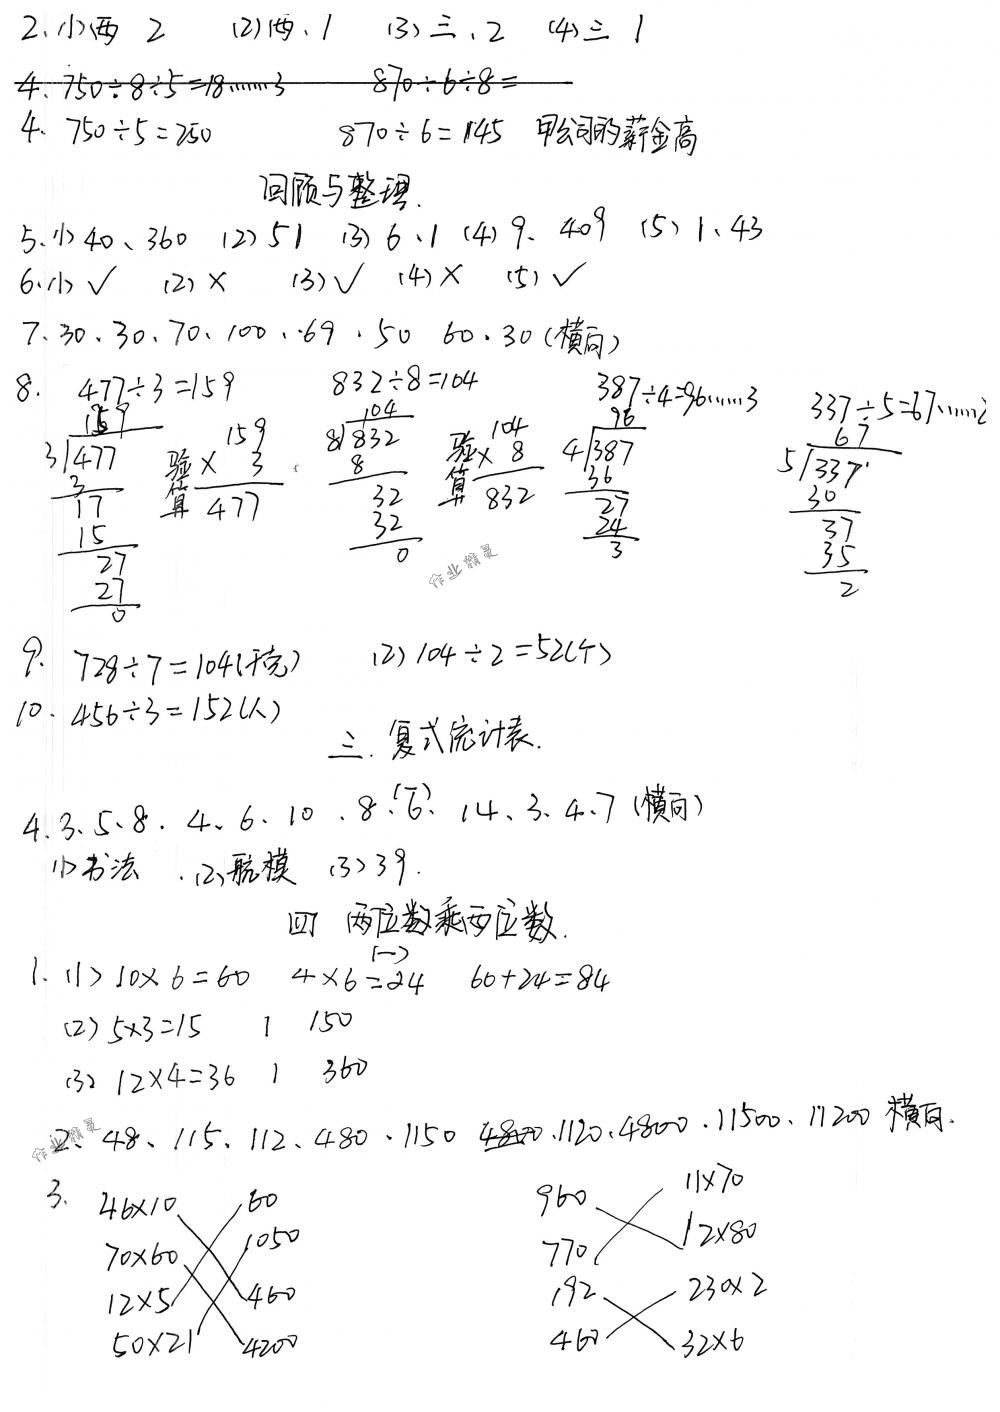 2. (1)两 2 (2)两、1 (3)三、2 (4)三 1
4. 750÷8÷5=18……3 870÷6÷8=
4. 750÷5=250 870÷6=145 甲公司的薪金高
回顾与整理.
5. (1) 40、360 (2) 51 (3) 6、1 (4) 9、409 (5) 1、43
6. (1) √ (2) × (3) √ (4) × (5) √
7. 30、30、70、100、69、50 60、30(横向)
8. 477÷3=159 832÷8=104 387÷4=96……3 337÷5=67……2
159 104 96 67
3/477 验算 159 × 3 8/832 验算 104 × 8 4/387 5/337
3 477 8 832 36 30
17 32 27 37
15 32 24 35
27 0 3 2
27
0
作业精灵
9. 728÷7=104(千克) (2) 104÷2=52(个)
10. 456÷3=152(人)
三. 复式统计表.
(一)
4. 3、5、8、4、6、10、8、6、14、3、4、7 (横向)
(1) 书法 (2) 航模 (3) 39.
四 两位数乘两位数.
(一)
1. (1) 10×6=60 4×6=24 60+24=84
(2) 5×3=15 1 150
(3) 12×4=36 1 360
作业精灵
2. 48、115、112、480、1150 4800、1120、4800、11500、11200 横向.
3. 46×10 60 960 11×70
70×60 1050 770 12×80
12×5 460 192 230×2
50×21 4200 460 32×6